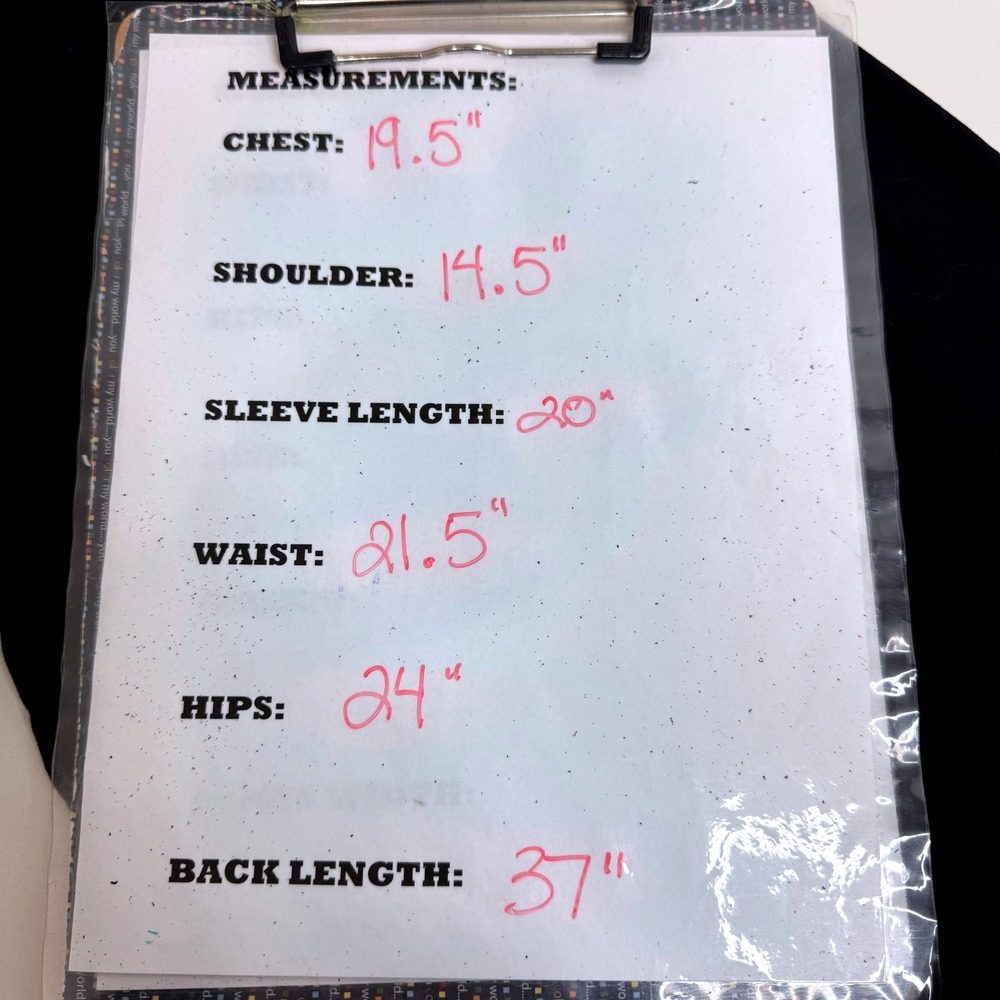 MEASUREMENTS:
CHEST: 19.5"
SHOULDER: 14.5"
SLEEVE LENGTH: 20"
WAIST: 21.5"
HIPS: 24"
BACK LENGTH: 37"